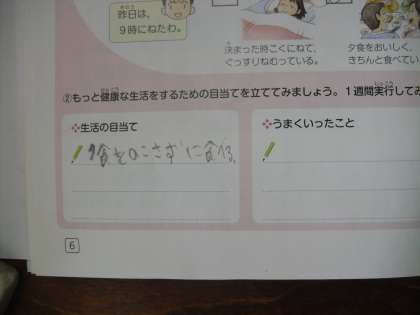 きのう
昨日は、
9時にねたわ。
き
決まった時こくにねて、
ぐっすりねむっている。
夕食をおいしく、
きちんと食べてい
②もっと健康な生活をするための目当てを立ててみましょう。1週間実行してみ
❖生活の目当て
❖うまくいったこと
夕食をのこさずに食べる。
6